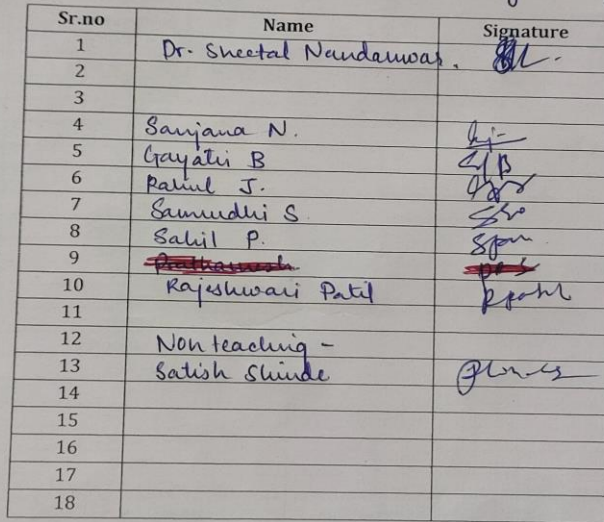 Sr.no Name Signature
1 Dr. Sheetal Nandanwar.
2
3
4 Sanjana N.
5 Gayatri B
6 Rahul J.
7 Samrudhi S.
8 Sahil P.
9 Prathamesh
10 Rajeshwari Patil
11
12 Non teaching -
13 Satish Shinde
14
15
16
17
18